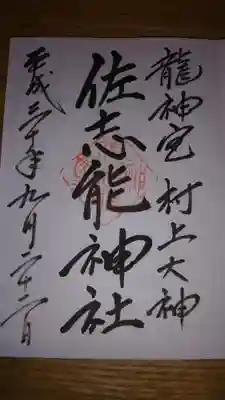 龍神宮 村上大神
佐志能神社
平成三十年九月二十二日